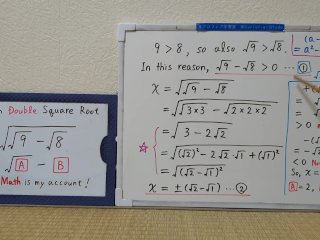 Double Square Root
√√9 - √8
√A - B
Math is my account!
9 > 8, so also √9 > √8.
In this reason, √9 - √8 > 0 … ①
x = √√9 - √8
= √√3×3 - √2×2×2
= √3 - 2√2
☆
= √(√2)² - 2√2·√1 + (√1)²
= √(√2 - √1)²
x = ±(√2 - √1) … ②
(a -
= a² -
> 0
< 0
So, x =
A = 2,